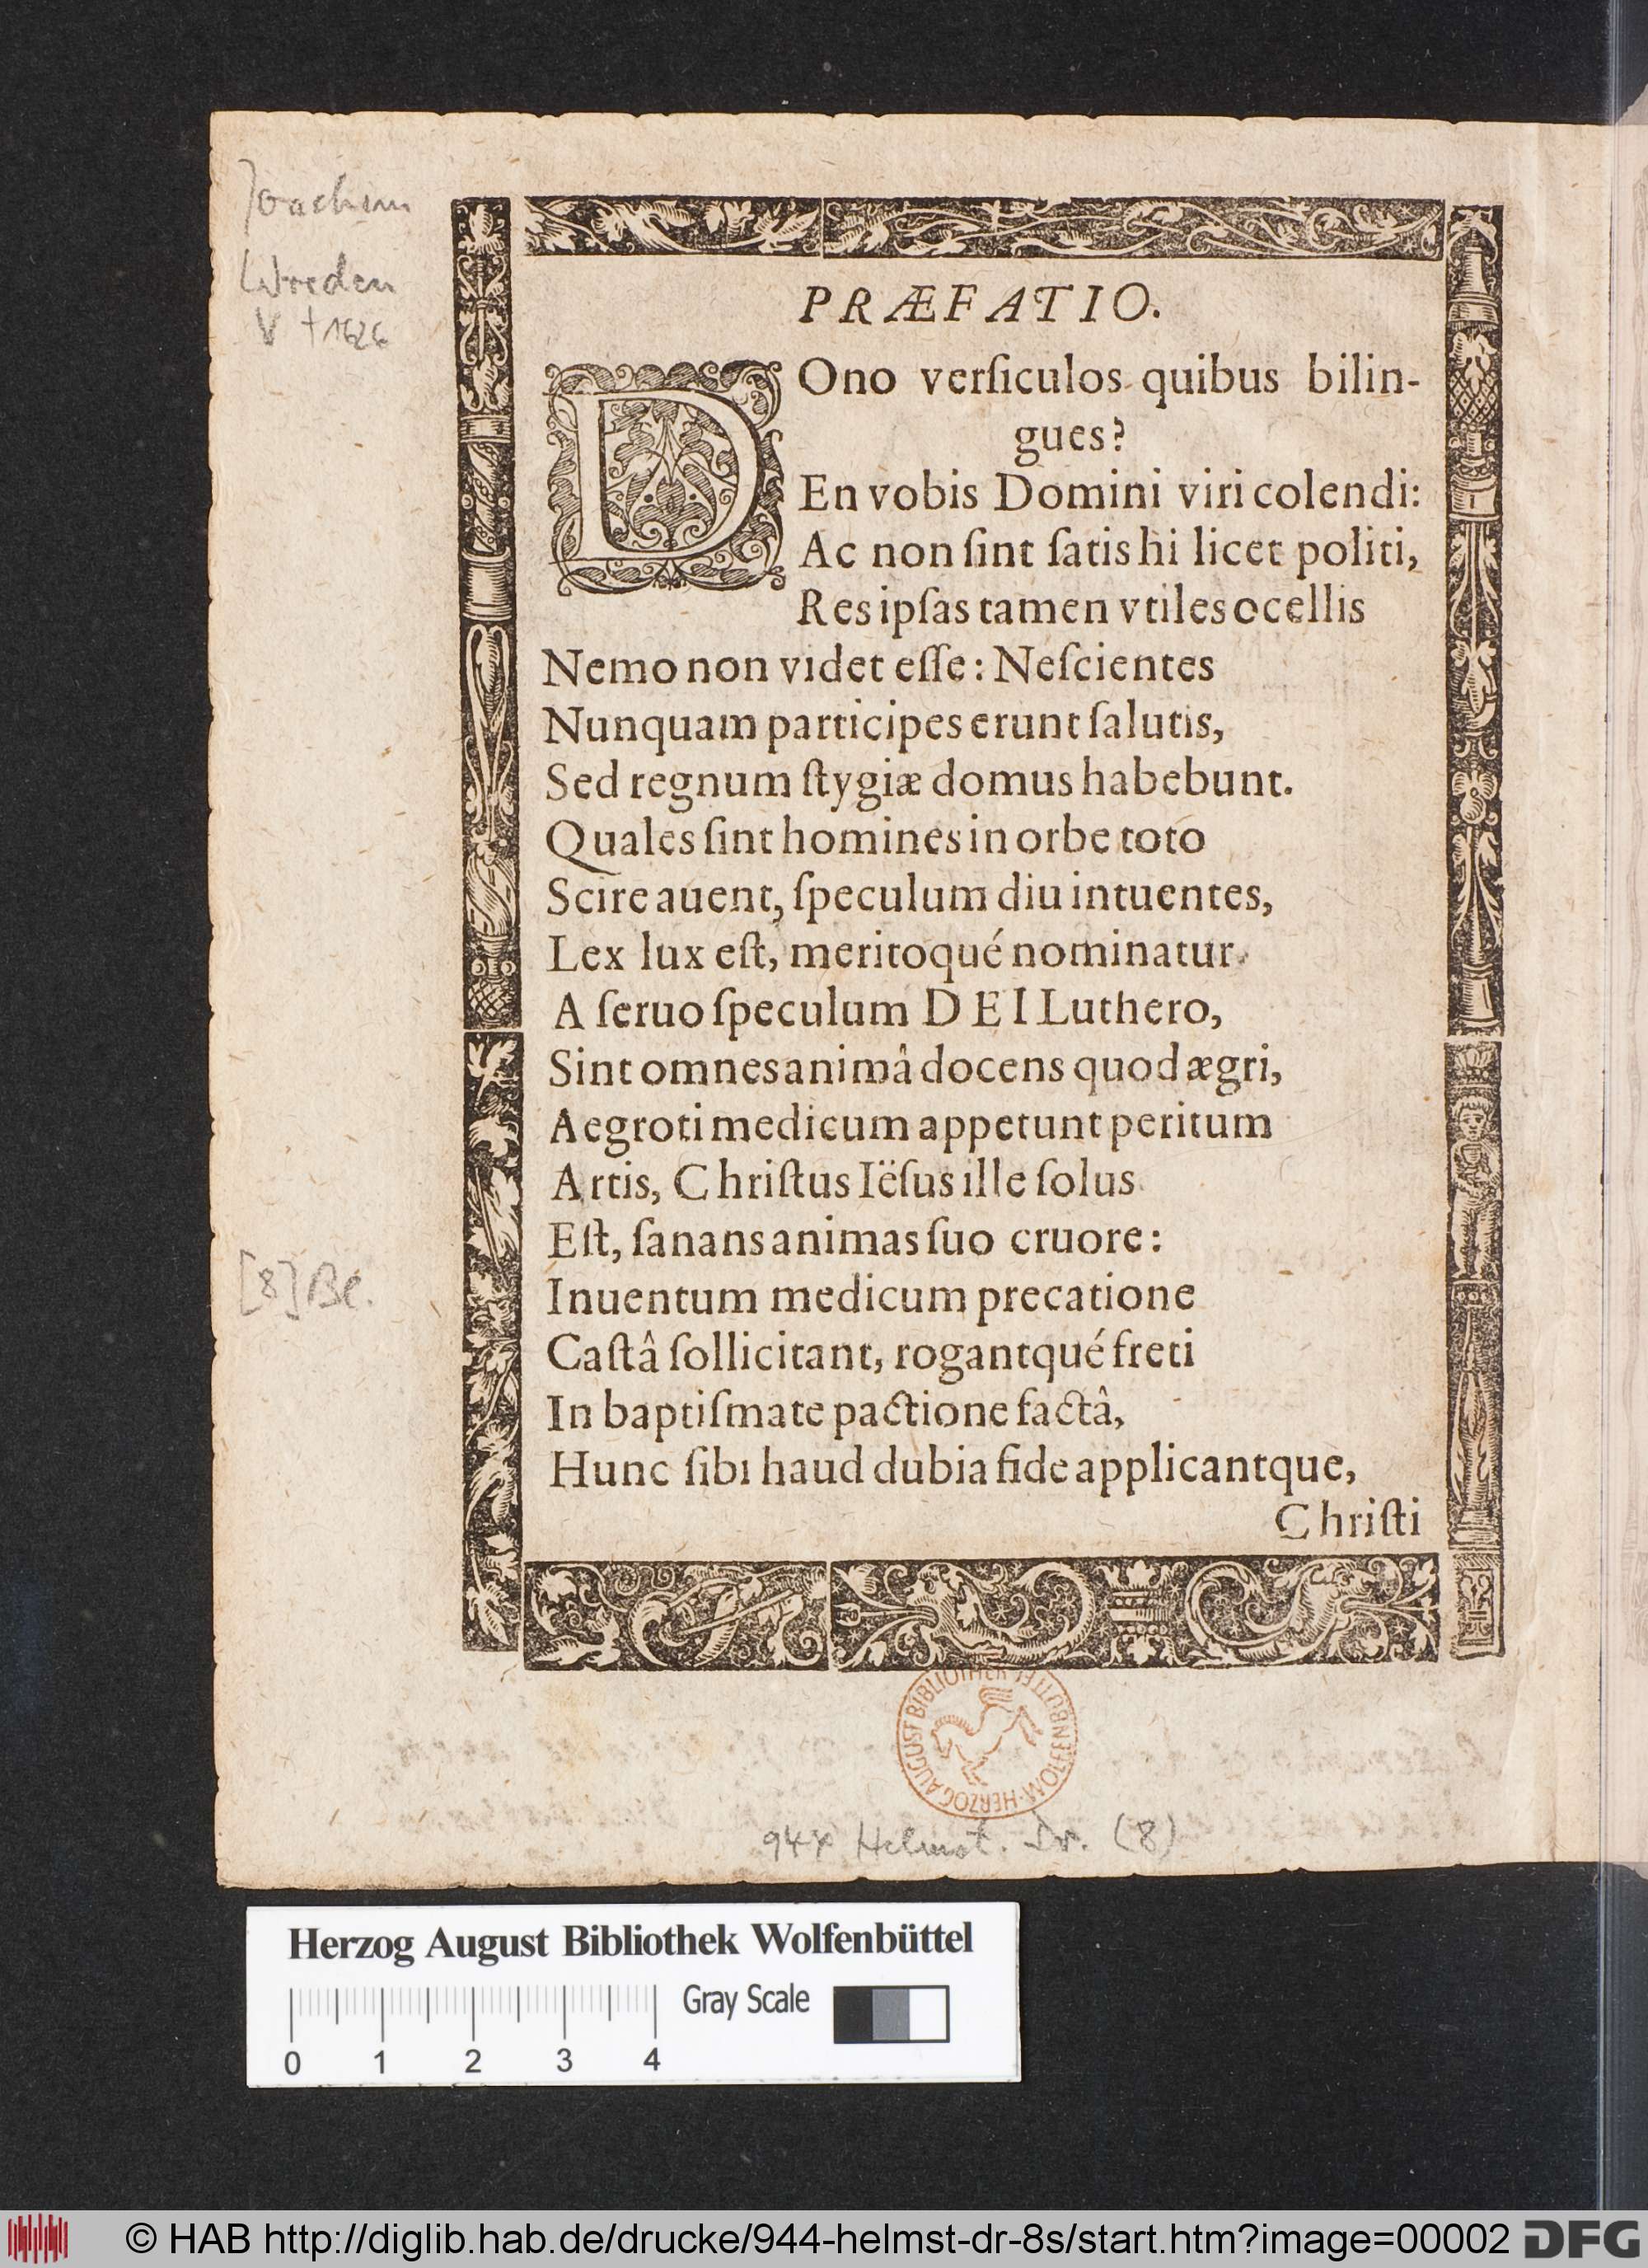 Joachim
Wreden
V † 1626
PRÆFATIO.
DOno verſiculos quibus bilin-
gues?
En vobis Domini viri colendi:
Ac non ſint ſatis hi licet politi,
Res ipſas tamen vtiles ocellis
Nemo non videt eſſe: Neſcientes
Nunquam participes erunt ſalutis,
Sed regnum ſtygiæ domus habebunt.
Quales ſint homines in orbe toto
Scire auent, ſpeculum diu intuentes,
Lex lux eſt, meritoqué nominatur
A ſeruo ſpeculum DEI Luthero,
Sint omnes animâ docens quod ægri,
Aegroti medicum appetunt peritum
Artis, Chriſtus Iëſus ille ſolus
Eſt, ſanans animas ſuo cruore:
Inuentum medicum precatione
Caſtâ ſollicitant, rogantqué freti
In baptiſmate pactione factâ,
Hunc ſibi haud dubia fide applicantque,
Chriſti
[8] Bl.
HERZOG AUGUST BIBLIOTHEK WOLFENBÜTTEL
944 Helmst. Dr. (8)
Herzog August Bibliothek Wolfenbüttel
Gray Scale
0 1 2 3 4
© HAB http://diglib.hab.de/drucke/944-helmst-dr-8s/start.htm?image=00002 DFG